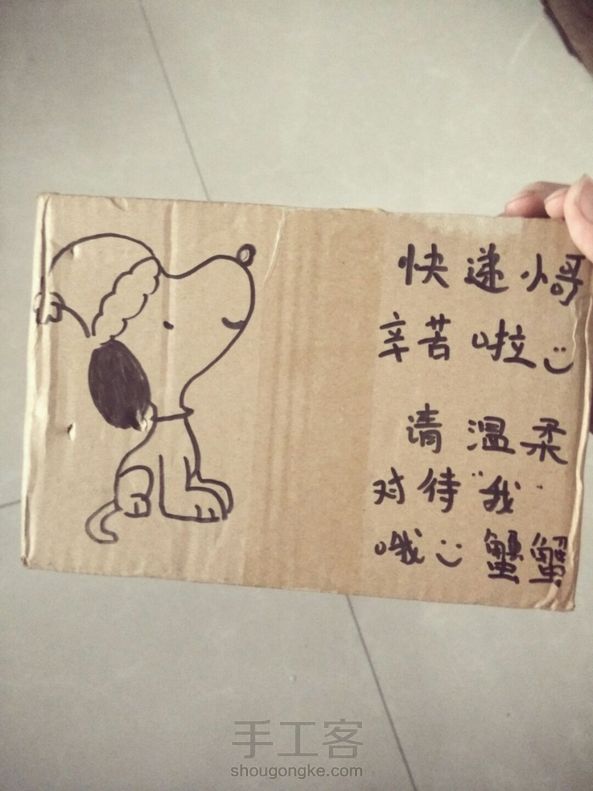 快递小哥
辛苦啦
请温柔
对待"我"
哦 蟹蟹
手工客
shougongke.com